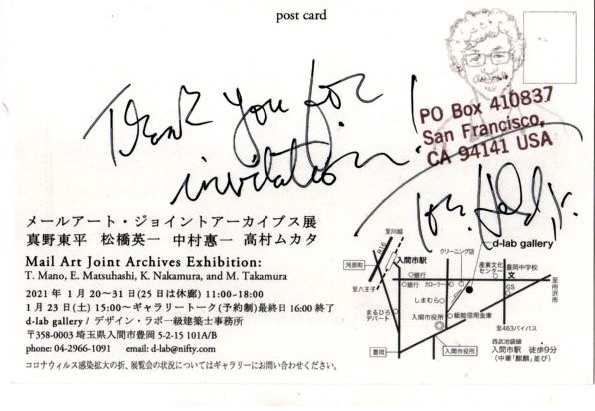 post card
PO Box 410837
San Francisco,
CA 94141 USA
Thank you for
invitation!
メールアート・ジョイントアーカイブス展
真野東平　松橋英一　中村惠一　高村ムカタ
Mail Art Joint Archives Exhibition:
T. Mano, E. Matsuhashi, K. Nakamura, and M. Takamura
2021年 1月 20～31日(25日は休廊) 11:00-18:00
1月 23日(土) 15:00～ギャラリートーク(予約制)最終日 16:00 終了
d-lab gallery / デザイン・ラボ一級建築士事務所
〒358-0003 埼玉県入間市豊岡 5-2-15 101A/B
phone: 04-2966-1091　email: d-lab@nifty.com
コロナウィルス感染拡大の折、展覧会の状況についてはギャラリーにお問い合わせください。
d-lab gallery
至川越
R16
入間市駅
クリーニング店
産業文化
センター
豊岡中学校
河原町
至八王子
銀行
銀行
しまむら
GS
至所沢市
まるひろ
デパート
入間市役所
飯能信用金庫
至463バイパス
豊岡
入間市役所
西武池袋線
入間市駅　徒歩9分
(中華「麒麟」並び)